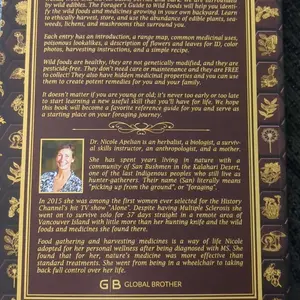 by wild edibles. The Forager's Guide to Wild Foods will help you identi-
fy the wild foods and medicines growing in your own backyard. Learn
to ethically harvest, store, and use the abundance of edible plants, sea-
weeds, ferns, and mushrooms that surround you.
Each entry has an introduction, a range map, common medicinal uses,
poisonous lookalikes, a description of flowers and leaves for ID, color
photos, harvesting instructions, and a simple recipe.
Wild foods are healthy, they are not genetically modified, and they are
pesticide-free. They don't need care or maintenance and they are FREE
to collect! They also have hidden medicinal properties and you can use
them to create potent remedies for you and your family.
It doesn't matter if you are young or old; it's never too early or too late
to start learning a new useful skill that you'll have for life. We hope
this book will become a favorite reference guide for you and serve as
a starting place on your foraging journey.
Dr. Nicole Apelian is an herbalist, a biologist, a survival
skills instructor, an anthropologist, and a mother.
She has spent years living in nature with a
community of San Bushmen in the Kalahari Desert,
one of the last Indigenous peoples who still live as
hunter-gatherers. Their name (San) literally means
"picking up from the ground", or "foraging".
In 2015 she was among the first women ever selected for the History
Channel's hit TV show "Alone". Despite having Multiple Sclerosis she
went on to survive solo for 57 days straight in a remote area of
Vancouver Island with little more than her hunting knife and the wild
foods and medicines she found there.
Food gathering and harvesting medicines is a way of life Nicole
adopted for her personal wellness after being diagnosed with MS. She
found that for her, nature's medicine was more effective than
standard treatments. She went from being in a wheelchair to taking
back full control over her life.
GB GLOBAL BROTHER